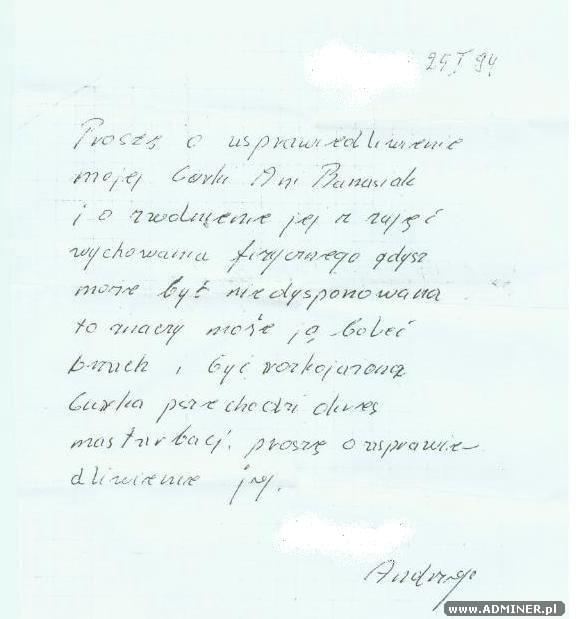 25 I 94
Proszę o usprawiedliwienie
mojej Curki Ani Banasiak
i o zwolnienie jej z zajęć
wychowania fizycznego gdysz
może być niedysponowana
to znaczy może ją boleć
brzuch i być rozkojarzona
Curka przechodzi okres
masturbacji. proszę o usprawie-
dliwienie jej.
Andrzej
www.ADMINER.pl